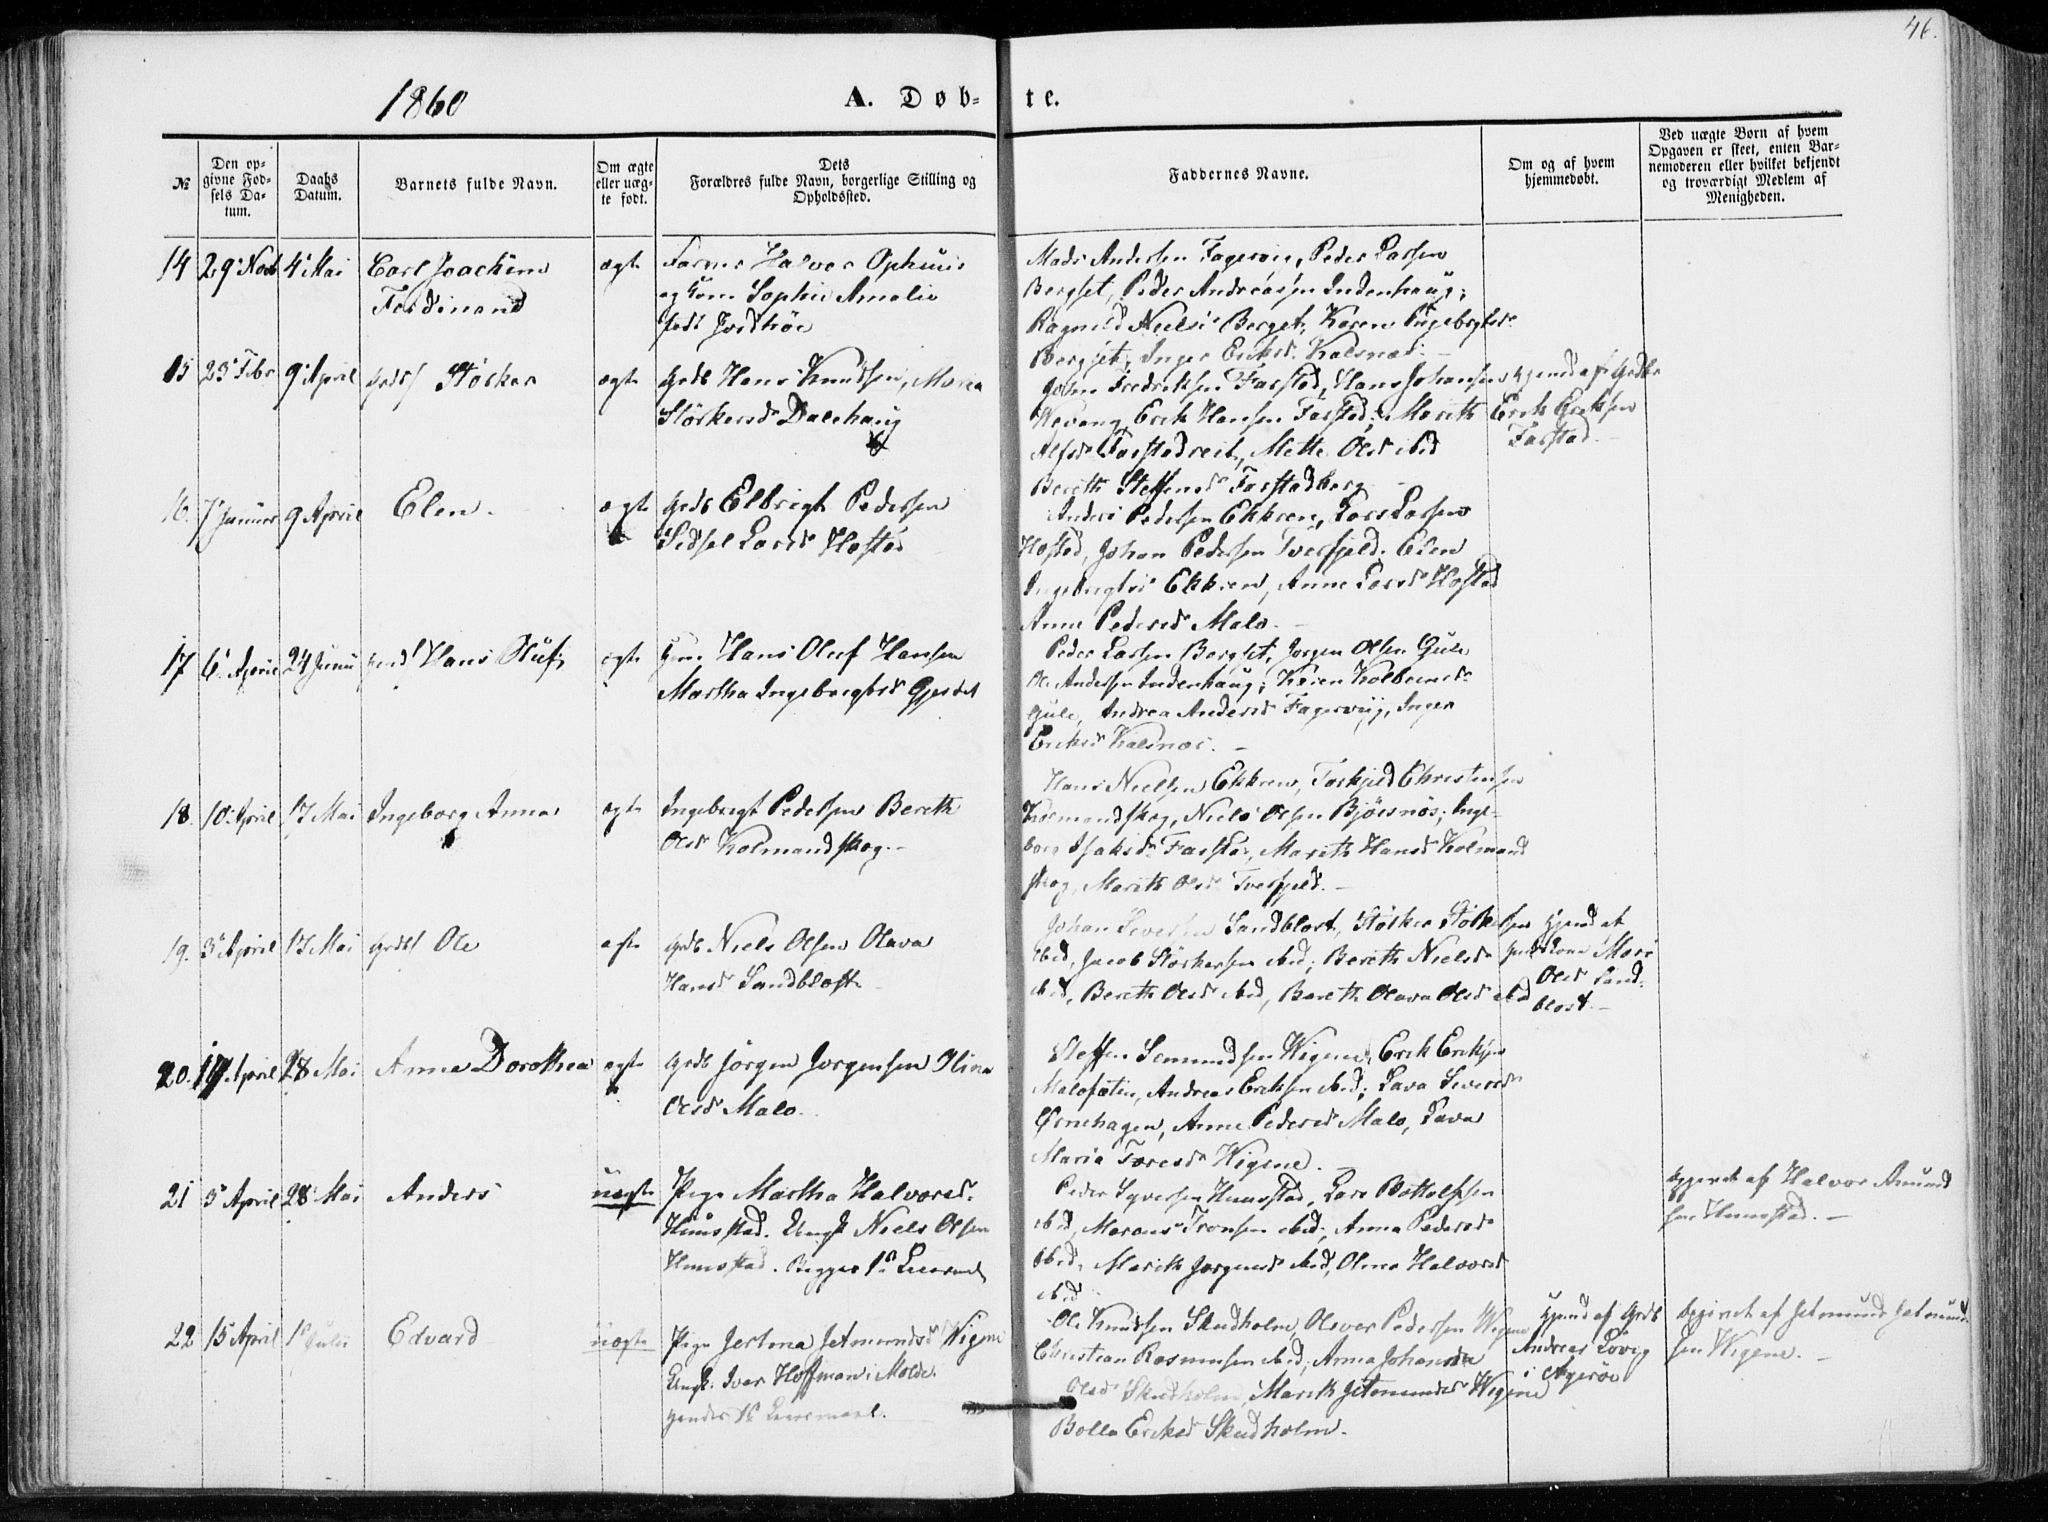 46.
1860
A. Døb-
te.
№
Den op-
givne Fød-
sels Da-
tum.
Daabs
Datum.
Barnets fulde Navn.
Om ægte
eller uæg-
te født.
Dets
Forældres fulde Navn, borgerlige Stilling og
Opholdssted.
Faddernes Navne.
Om og af hvem
hjemmedøbt.
Ved uægte Børn af hvem
Opgaven er skeet, enten Bar-
nemoderen eller hvilket bekjendt
og troværdigt Medlem af
Menigheden.
14 29 Novb 4 Mai Carl Joachim
Ferdinand
ægte
Halvor Ophuus
og Kone Sophie Amalie
født
Mads Andersen Fagervig, Peder Larsen
Bergset, Peder Andreasen Indenhaug;
Ragnild Nielsd Berget, Karen Ingebrgtsd
Bergset, Inger Eriksd. Kalsnæs.
15 23 Febr 9 April Størker
ægte
Grdb Hans Knudsen, Maria
Størkersd Dalehaug
Fredriksen Farstad, Hans Johansen
Wevang, Erik Hansen Farstad; Marith
Alfsd Farstadreit, Mette Olsd ibid
Bereth Steffensd Farstadberg
Hjemd af Grdbr
Erik Eriksen
Farstad.
16. 7 Januar 9 April Elen.
ægte
Grdb Elbrigt Pedersen
Sidsel Larsd Hostad
Anders Pedersen Ekkren, Lars Larsen
Hostad, Johan Pedersen Tverfjeld. Elen
Ingebrigtsd Ekkren, Anne Larsd Hostad
Anne Pedersd Malo.
17 6 April 24 Juni Hans Oluf
ægte
Hans Oluf Hansen
Martha Ingebrigtsd Gjerdet
Peder Larsen Bergset, Jørgen Olsen Gule
Ole Andersen Indenhaug; Karen Kolbeinsd
Gule, Andrea Andersd Fagervig, Inger
Eriksd Kalsnæs.
18. 10 April 17 Mai Ingeborg Anna
ægte
Ingebrigt Pedersen Bereth
Olsd Kolmandskog.
Hans Nielsen Ekkren, Torkjeld Christensen
Kolmandskog, Niels Olsen Bjørsnøs; Inge-
borg Isaksd Farstad, Marith Hansd Kolmand
skog, Marith Olsd Tverfjeld.
19. 3 April 17 Mai Ole
ægte
Grdb Niels Olsen Olava
Hansd Sandblost
Johan Iversen Sandblost, Størker Størkersen
ibid, Jacob Størkersen ibid; Bereth Nielsd
ibid, Bereth Olsd ibid, Bereth Olava Olsd ibid
Hjemd af
Kone Mari
Olsd Sand-
blost.
20. 17 April 28 Mai Anne Dorothea
ægte
Grdb Jørgen Jørgensen Olina
Olsd Malo.
Steffen Semundsen Wigene, Erik Eriksen
Malofoten, Andreas Eriksen ibid; Lava Siversd
Ørnehagen, Anne Pedersd Malo, Lava
Maria Toresd Wigene.
21 5 April 28 Mai Anders
uægte
Pige Martha Halvorsd.
Hunstad. Ungk Niels Olsen
Hunstad. Begges 1ste Leiermaal
Peder Syversen Hunstad, Lars Bottolfsen
ibid, Marens Tronsen ibid; Anna Pedersd
ibid, Marith Jørgensd ibid, Olina Halvorsd
ibid
Opgivet af Halvor Amund
sen Hunstad.
22 15 April 1 Julii Edvard
uægte
Pige Jertina Jetmundsd Wigene
Ungk. Iver Hoffman i Molde.
hendes 1ste Leiermaal.
Ole Knudsen Skudholm, Oliver Pedersen Wigene
Christian Rasmussen ibid; Anna Johanna
Olsd Skudholm, Marith Jetmundsd Wigene
Bolla Eriksd Skudholm.
Hjemd af Grdb
Andreas Løvig
i Agerøe
Opgivet af Jetmund Jetmund-
sen Wigene.